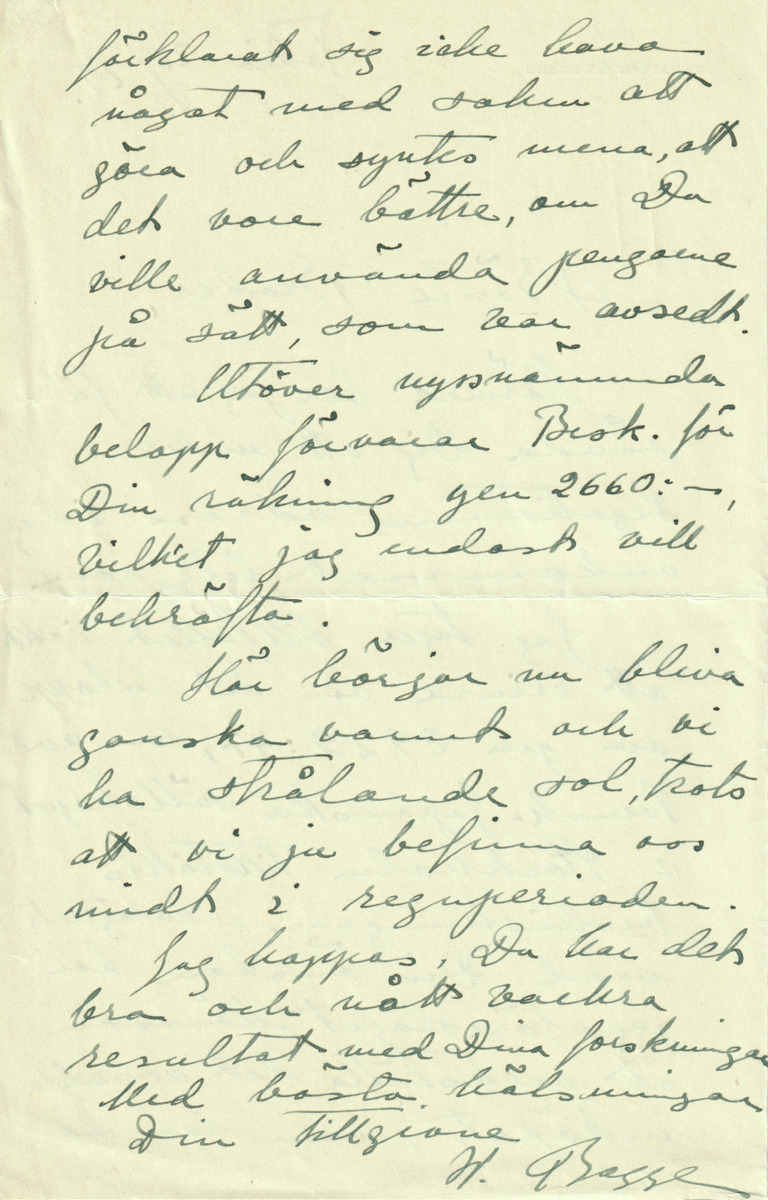 förklarat sig icke hava
något med saken att
göra och syntes mena, att
det vore bättre, om Du
ville använda pengarne
på sätt, som var avsedt.
Utöver nyssnämnda
belopp förvarar Besk. för
Din räkning yen 2660:-,
vilket jag endast vill
bekräfta.
Här börjar nu bliva
ganska varmt och vi
ha strålande sol, trots
att vi ju befinna oss
midt i regnperioden.
Jag hoppas, Du har det
bra och nått vackra
resultat med Dina forskningar
Med bästa hälsningar
Din tillgivne
H. Bagge